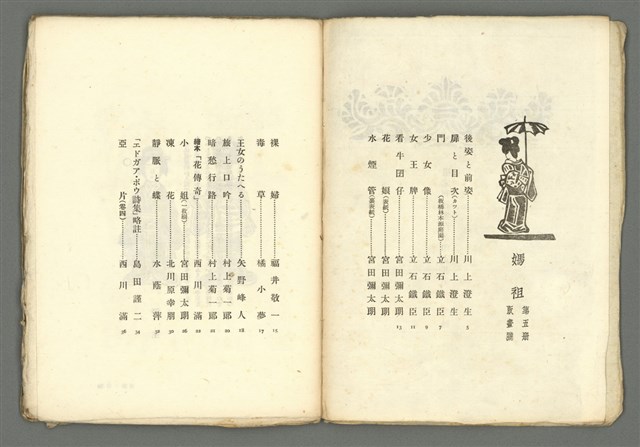 媽祖
第五册
版畫號
後姿と前姿……川上澄生 5
扉と目次(カツト)……川上澄生
門(板橋林本源邸園)……立石鐵臣 7
少女像……立石鐵臣 9
女王牌……立石鐵臣 11
看牛囝仔……宮田彌太朗 13
花娘……宮田彌太朗
水煙管……宮田彌太朗
裸婦……福井敬一 15
毒草……橘小夢 17
王女のうたへる……矢野峰人 18
旅上口吟……村上菊一郎
暗愁行路……村上菊一郎
繪本「花傳奇」……西川滿
小姐……宮田彌太朗
凍花……北川原幸朋
靜脈と蝶……水蔭萍
「エドガア・ポウ詩集」略註……島田謹二
亞片(零四)……西川滿